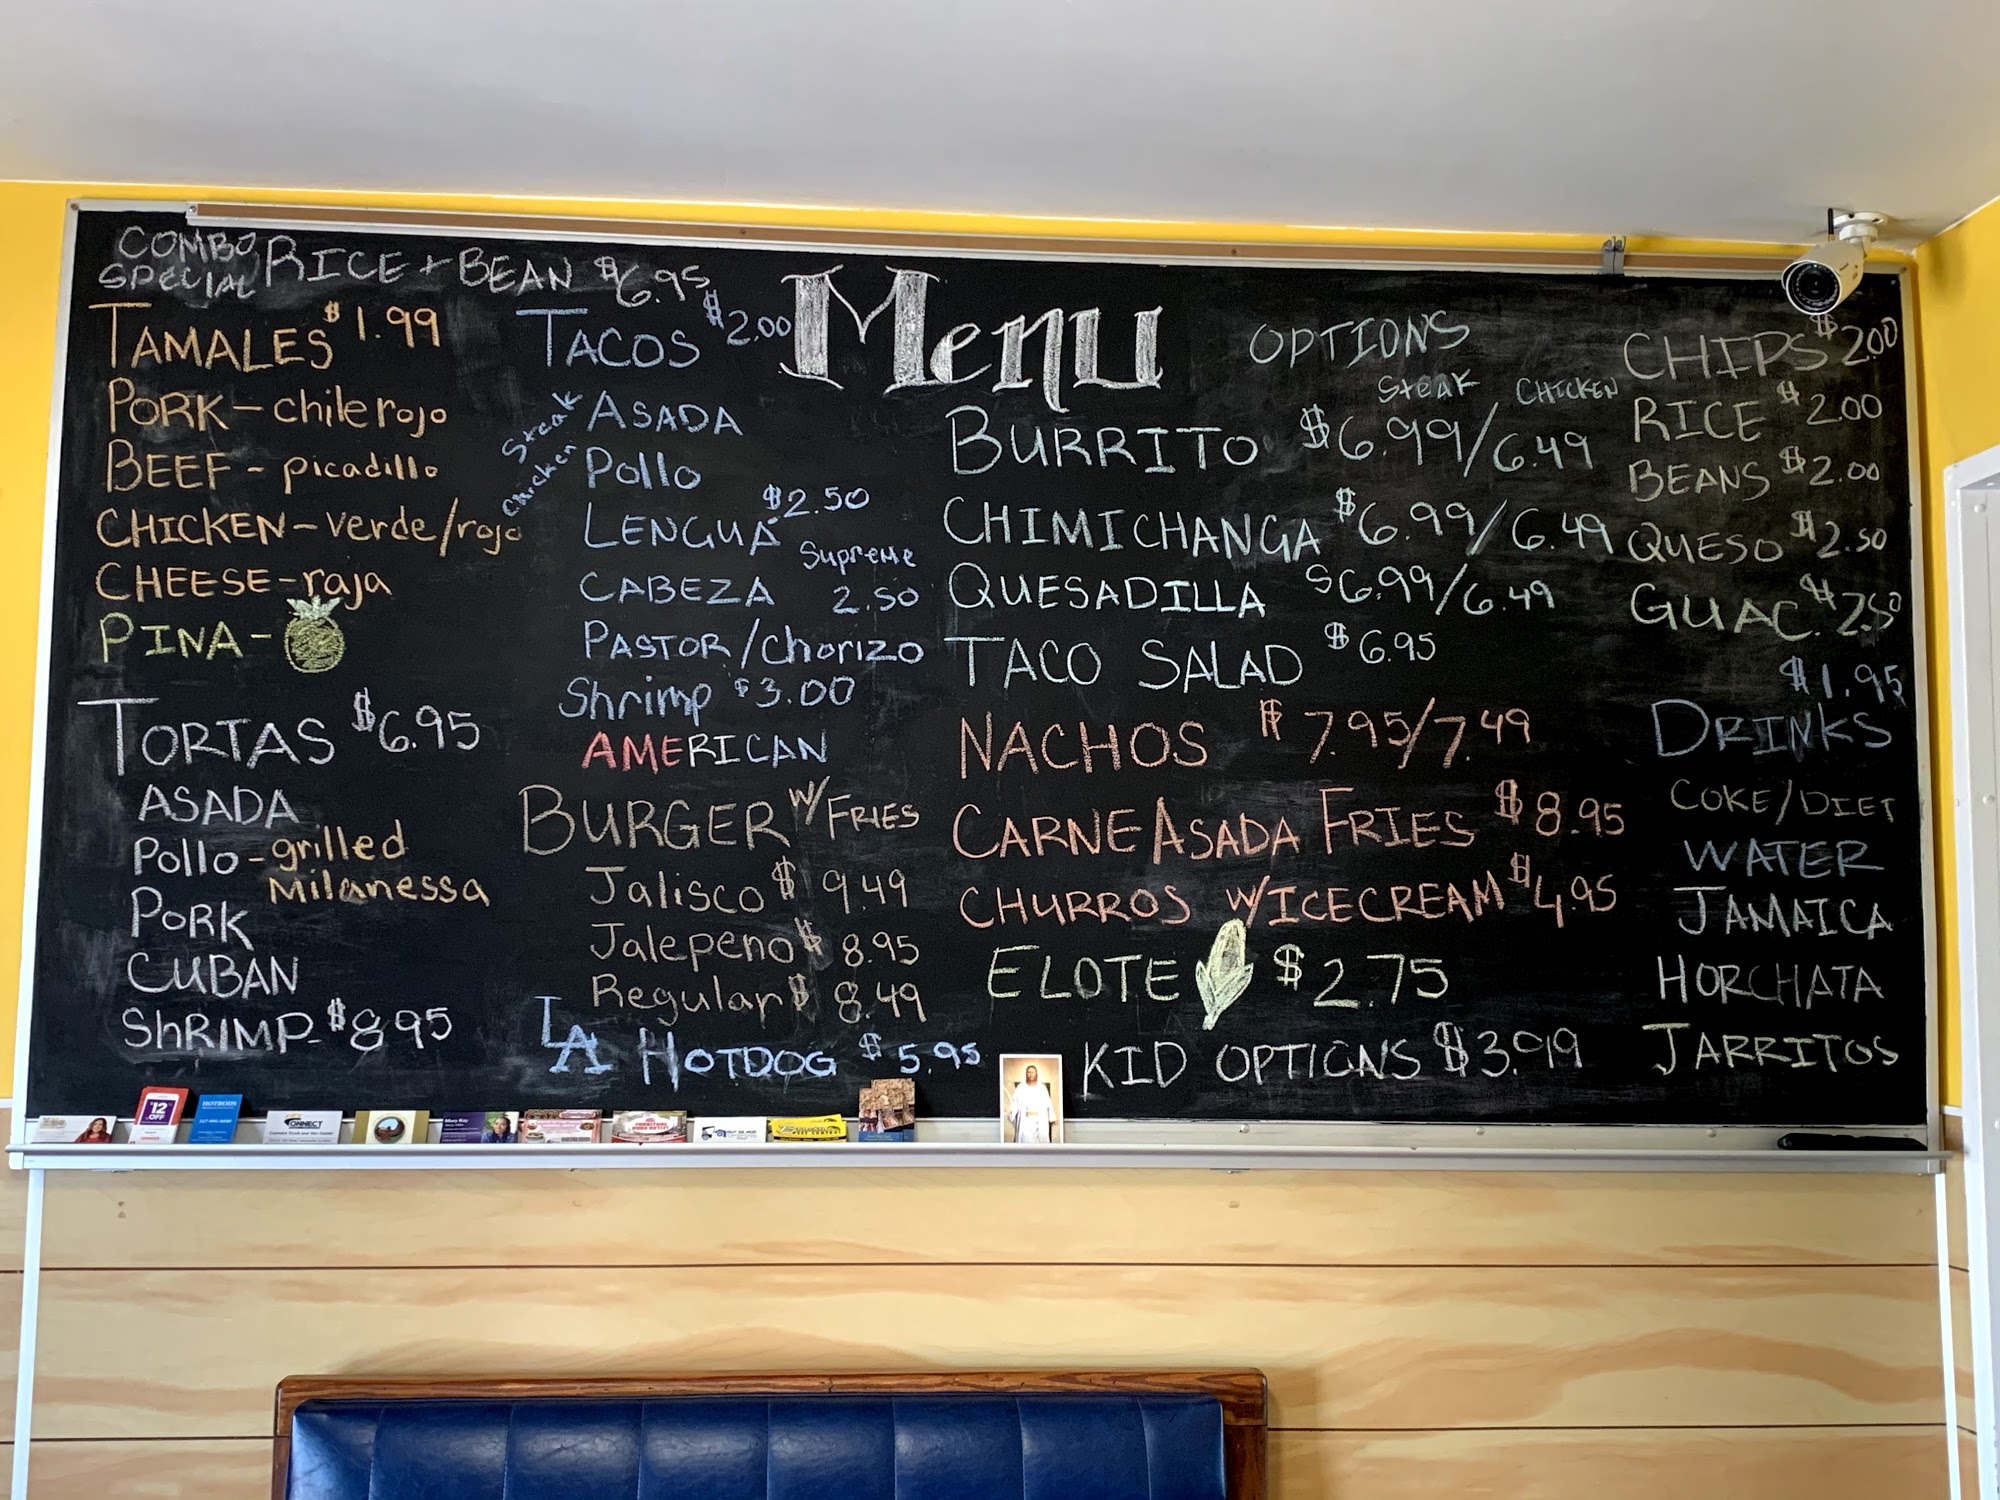 Menu
COMBO SPECIAL RICE + BEAN $6.95
TAMALES $1.99
PORK - chile rojo
BEEF - picadillo
CHICKEN - verde/rojo
CHEESE - raja
PINA -
TORTAS $6.95
ASADA
Pollo - grilled
Milanessa
PORK
CUBAN
ShRIMP - $8.95
TACOS $2.00
Steak ASADA
Chicken Pollo
LENGUA $2.50
Supreme
CABEZA 2.50
PASTOR/Chorizo
Shrimp $3.00
AMERICAN
BURGER W/ FRIES
Jalisco $9.49
Jalepeno $8.95
Regular $8.49
LA HOTDOG $5.95
OPTIONS
Steak CHICKEN
BURRITO $6.99/6.49
CHIMICHANGA $6.99/6.49
QUESADILLA $6.99/6.49
TACO SALAD $6.95
NACHOS $7.95/7.49
CARNE ASADA FRIES $8.95
CHURROS W/ICECREAM $4.95
ELOTE $2.75
KID OPTIONS $3.99
CHIPS $2.00
RICE $2.00
BEANS $2.00
QUESO $2.50
GUAC. $2.50
$1.95
DRINKS
COKE/DIET
WATER
JAMAICA
HORCHATA
JARRITOS
$12 OFF
CONNECT
Mary Kay